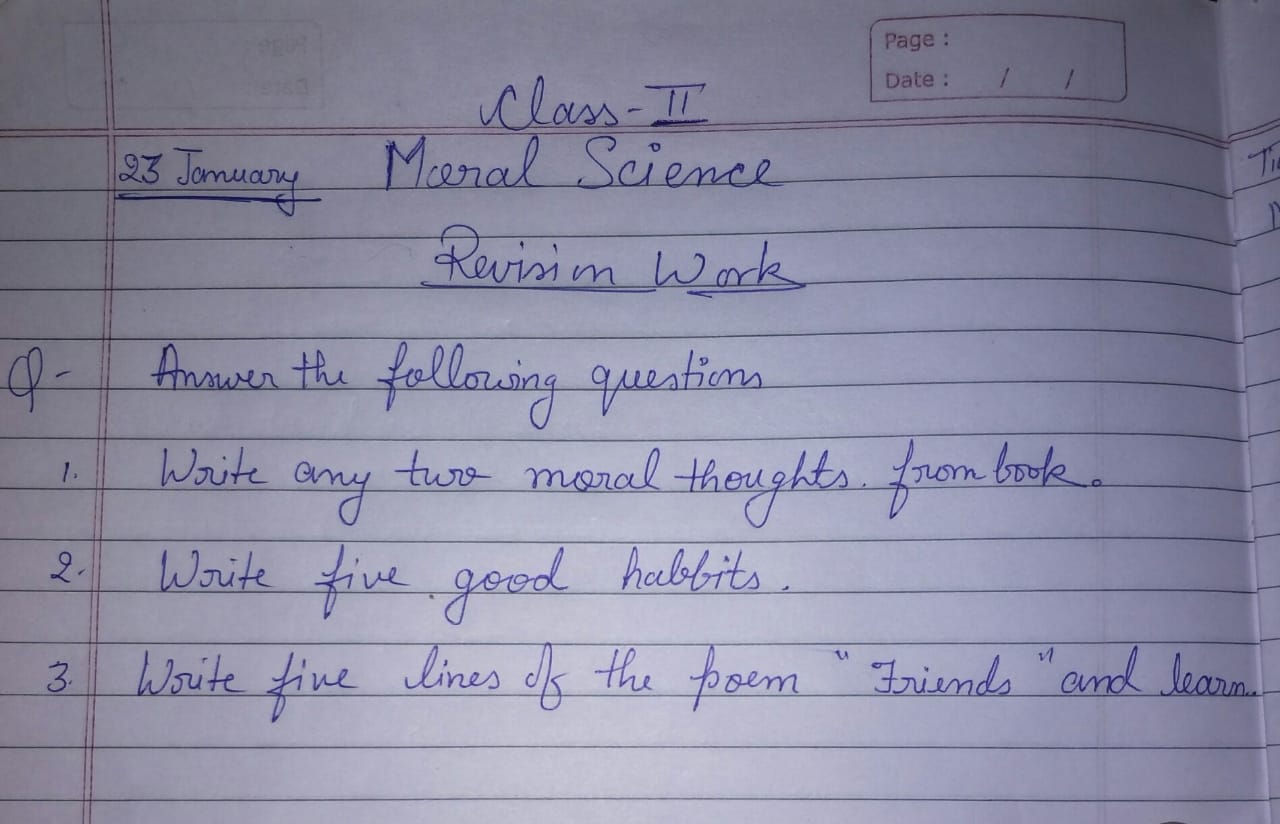 Page :
Date : / /
Class-II
23 January Moral Science
Revision Work
Q- Answer the following questions
1. Write any two moral thoughts. from book.
2. Write five good habbits.
3. Write five lines of the poem "Friends" and learn.